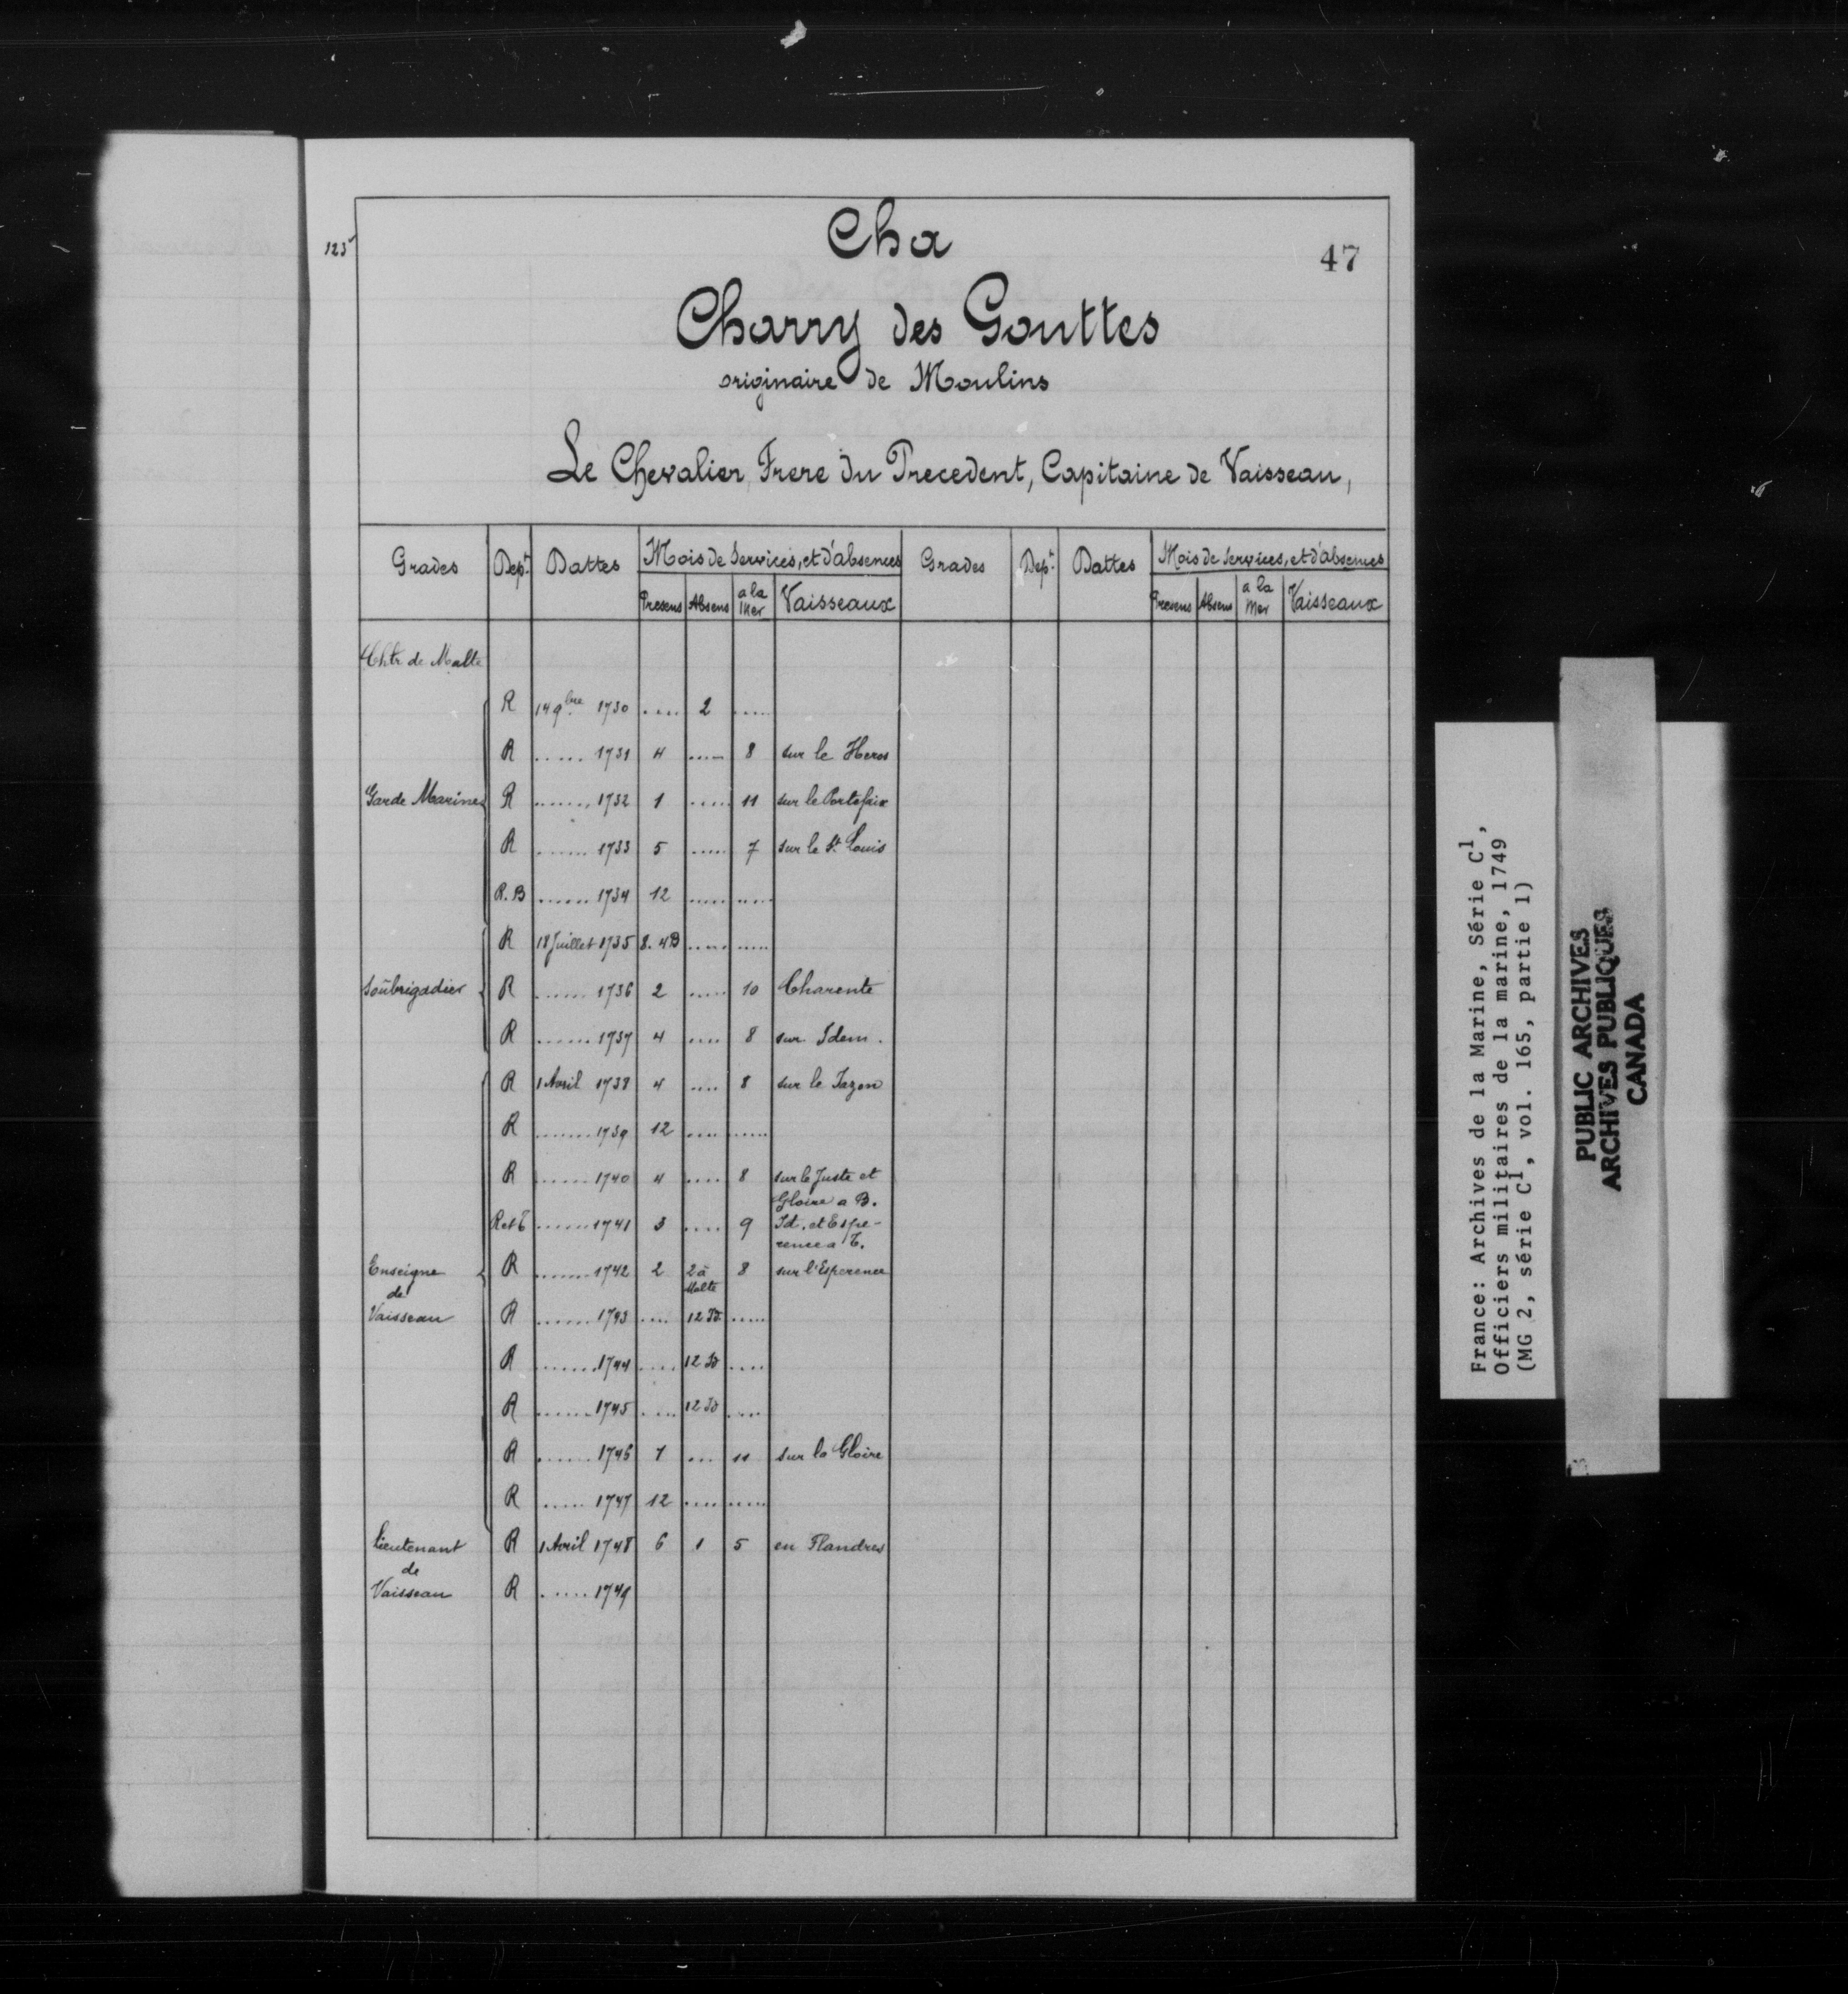 123
Cha
47
Charry des Gouttes
originaire de Moulins
Le Chevalier, Frere du Precedent, Capitaine de Vaisseau,
Grades Dept. Dattes Mois de Services, et d'absences Grades Dept. Dattes Mois de Services, et d'absences
Presens Absens a la Mer Vaisseaux Presens Absens a la Mer Vaisseaux
de Malte
R 14 9bre 1730 ..... 2 .....
R ...... 1731 4 ..... 8 sur le Heros
Garde Marine R ....... 1732 1 ..... 11 sur le Portefaix
R ....... 1733 5 ..... 7 sur le St. Louis
R. B ...... 1734 12 ..... .....
R 18 Juillet 1735 8. 4B ..... .....
Soubrigadier R ...... 1736 2 ..... 10 Charente
R ...... 1737 4 .... 8 sur Idem.
R 1 Avril 1738 4 .... 8 sur le Jazon
R ....... 1739 12 .... .....
R ...... 1740 4 .... 8 sur le Juste et
Gloire a B.
R et T ...... 1741 3 .... 9 Id. et Espe-
rence a T.
Enseigne R ....... 1742 2 2 à 8 sur l'Esperence
de Malte
Vaisseau R ...... 1743 .... 12 Id .....
R ...... 1744 .... 12 Id ....
R ...... 1745 .... 12 Id ....
R ...... 1746 1 ... 11 sur la Gloire
R ...... 1747 12 .... .....
Lieutenant R 1 Avril 1748 6 1 5 en Flandres
de
Vaisseau R ..... 1749
France: Archives de la Marine, Série C1,
Officiers militaires de la marine, 1749
(MG 2, série C1, vol. 165, partie 1)
PUBLIC ARCHIVES
ARCHIVES PUBLIQUES
CANADA